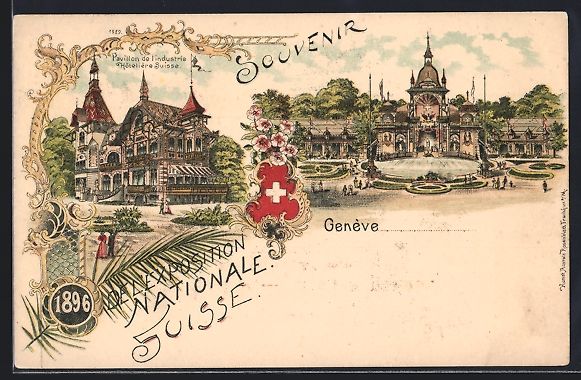 1989.
Pavillon de l'industrie
Hôtelière Suisse.
SOUVENIR
Genève
DE L'EXPOSITION
NATIONALE.
SUISSE.
1896